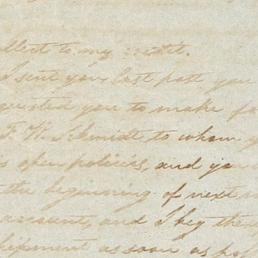 ollect to my credit.
I sent you last post you
quested you to make fo
F. W. Schmidt to whom y
s open policies, and yo
the beginning of next m
account, and I beg the
shipment as soon as pos